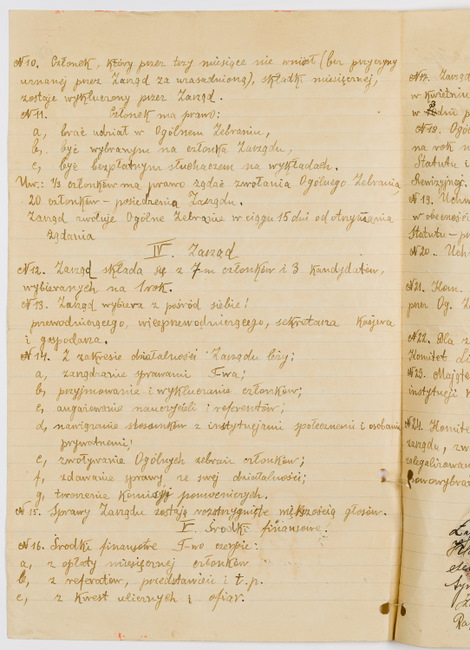 №10. Członek, który przez trzy miesiące nie wniósł (bez przyczyny
uznanej przez Zarząd za uzasadnioną), składki miesięcznej,
zostaje wykluczony przez Zarząd.
№11. Członek ma prawo:
a, brać udział w Ogólnem Zebraniu,
b, być wybranym na członka Zarządu,
c, być bezpłatnym słuchaczem na wykładach.
Uw.: 1/3 członków ma prawo żądać zwołania Ogólnego Zebrania,
20 członków – posiedzenia Zarządu.
Zarząd zwołuje Ogólne Zebranie w ciągu 15 dni od otrzymania
żądania
IV. Zarząd
№12. Zarząd składa się z 7-m członków i 3 kandydatów,
wybieranych na 1 rok.
№13. Zarząd wybiera z pośród siebie:
przewodniczącego, wiceprzewodniczącego, sekretarza kasjera
i gospodarza.
№14. Z zakresie działalności Zarządu leży;
a, zarządzanie sprawami T-wa;
b, przyjmowanie i wykluczanie członków;
c, angażowanie nauczycieli i referentów;
d, nawiązanie stosunków z instytucjami społecznemi i osobami
prywatnemi;
e, zwoływanie Ogólnych zebrań członków;
f, zdawanie sprawy ze swej działalności;
g, tworzenie Komisji pomocniczych.
№15. Sprawy Zarządu zostają rozstrzygnięte większością głosów.
V Środki finansowe.
№16. Środki finansowe T-wo czerpie:
a, z opłaty miesięcznej członków
b, z referatów, przedstawień i t.p.
c, z kwest ulicznych i ofiar.
№17. Zarząd
w kwietniu
№18. Ogó
na rok
Statutu i
Rewizyjnej.
№19. Uchw
w obecności
Statutu – pr
№20. Uch
№21. Kom.
przez Og. Z
№22. Dla z
Komitet Li
№23. Majątek
instytucji
№24. Komitet
zarządu, zw
zalegalizowan
nowowybra